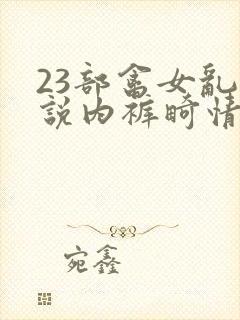 23部畜女乱
説内裤畸情
宛鑫